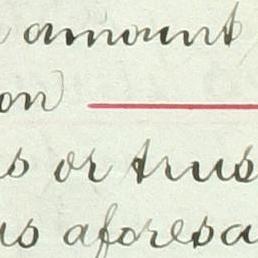 amount
on
s or trus
us aforesa